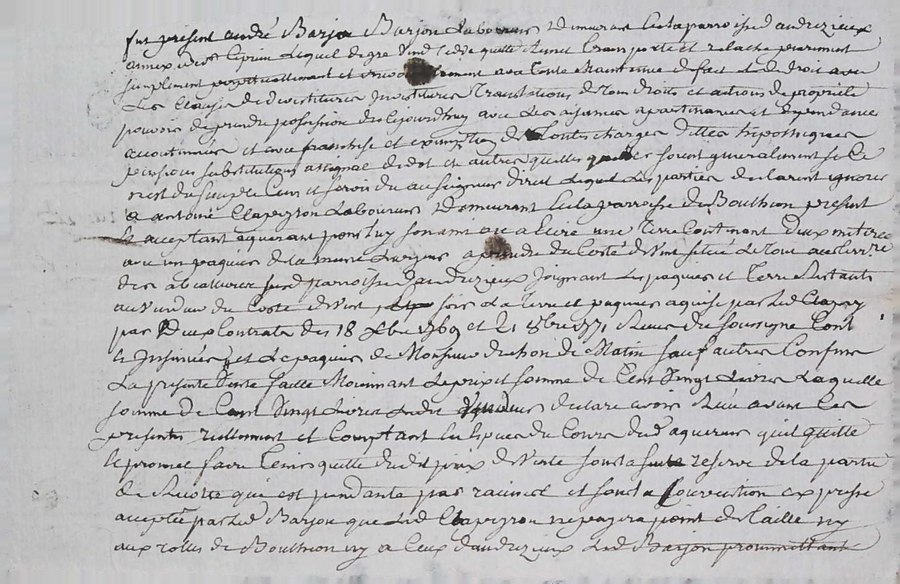 fut présent andré Barjon Barjon Laboureur Demeurant en la parroisse d'andrezieux
annexe de St Ciprien Lequel de gré vend cede quitte Remet transporte et relache purement
simplement perpetuellement et ment avec toute Maintenue de fait et de droit avec
Les Clauses de devestitures Investitures translations de tous droits et actions de propriété
pouvoir de prendre possession dès Cejourdhuy avec Les aisances apartenances et dependances
acoutumées et en franchise et exemptte de toutes charges dettes hipotheques
pensions substitutions assignat de dot et autres quelles quelles soient generalement si Ce
n'est du simple Cens et servis du au seigneur direct Lequel Les parties declarent ignorer
a antoine Clapeyron Laboureur Demeurant en la parroisse de Bouthion présent
et acceptant aquerant pour luy son ami a élire une terre Contenant deux
avec un paquier de la même a prendre du Coté de vent située Le tout au terroire
des parroisse d'andrezieux Joignant Les paquiers et terre Restants
au vendeur du Coté de vent soir La terre et paquier aquise par Led Clapeyron
par Deux Contrats des 18 1769 et 21 8bre 1771 Receus du soussigné Controllés
et Insinués et Le paquier de Monsieur de Matin sauf autres Confins
La presente vente faitte Moiennant Le prix et somme de Cent vingt Livres Laquelle
somme de Cent vingt Livres Ledit vendeur declare avoir Receu avant Ces
presentes reellement et Comptant en Especes du Cours dud aquereur qu'il quitte
et promet faire tenir quitte dudit prix de vente sous la reserve de la partie
de Recolte qui est pendante par racines et sous la Convention expresse
acceptée par Led Barjon que Led Clapeyron ne payera point de taille ny
aux rolles de Bouthion ny a Ceux d'andrezieux Led Barjon promettant